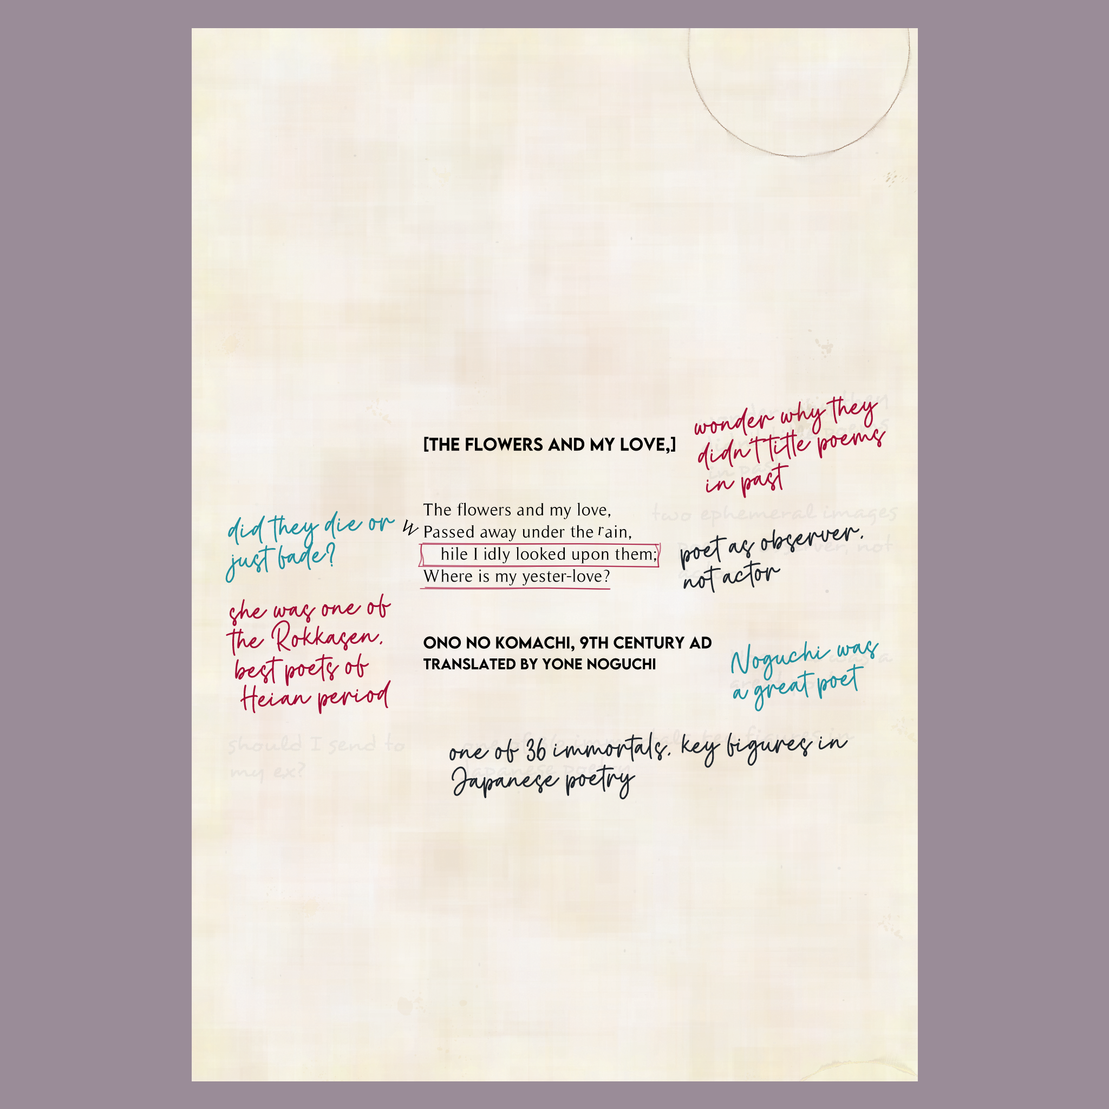 [THE FLOWERS AND MY LOVE,]
wonder why they
didn't title poems
in past
The flowers and my love,
Passed away under the rain,
W
hile I idly looked upon them;
Where is my yester-love?
did they die or
just fade?
two ephemeral images
poet as observer,
not actor
she was one of
the Rokkasen,
best poets of
Heian period
ONO NO KOMACHI, 9TH CENTURY AD
TRANSLATED BY YONE NOGUCHI
Noguchi was
a great poet
should I send to
my ex?
one of 36 immortals, key figures in
Japanese poetry